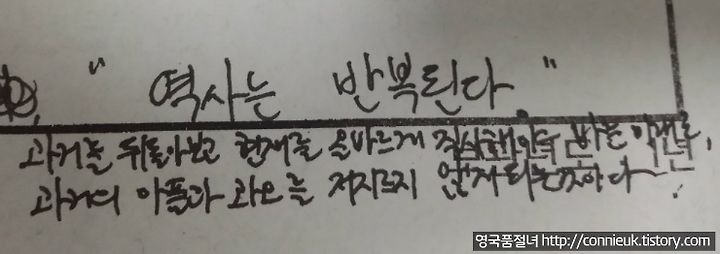 " 역사는 반복된다 "
과거를 뒤돌아보고 현재를 올바르게 직시해야
과거의 아픔과 과오를 저지르지 않게 되는것이다
영국품절녀 http://connieuk.tistory.com